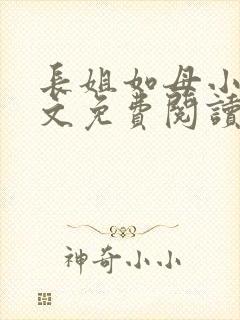 長姐如母小
文免費閱讀
神奇小小